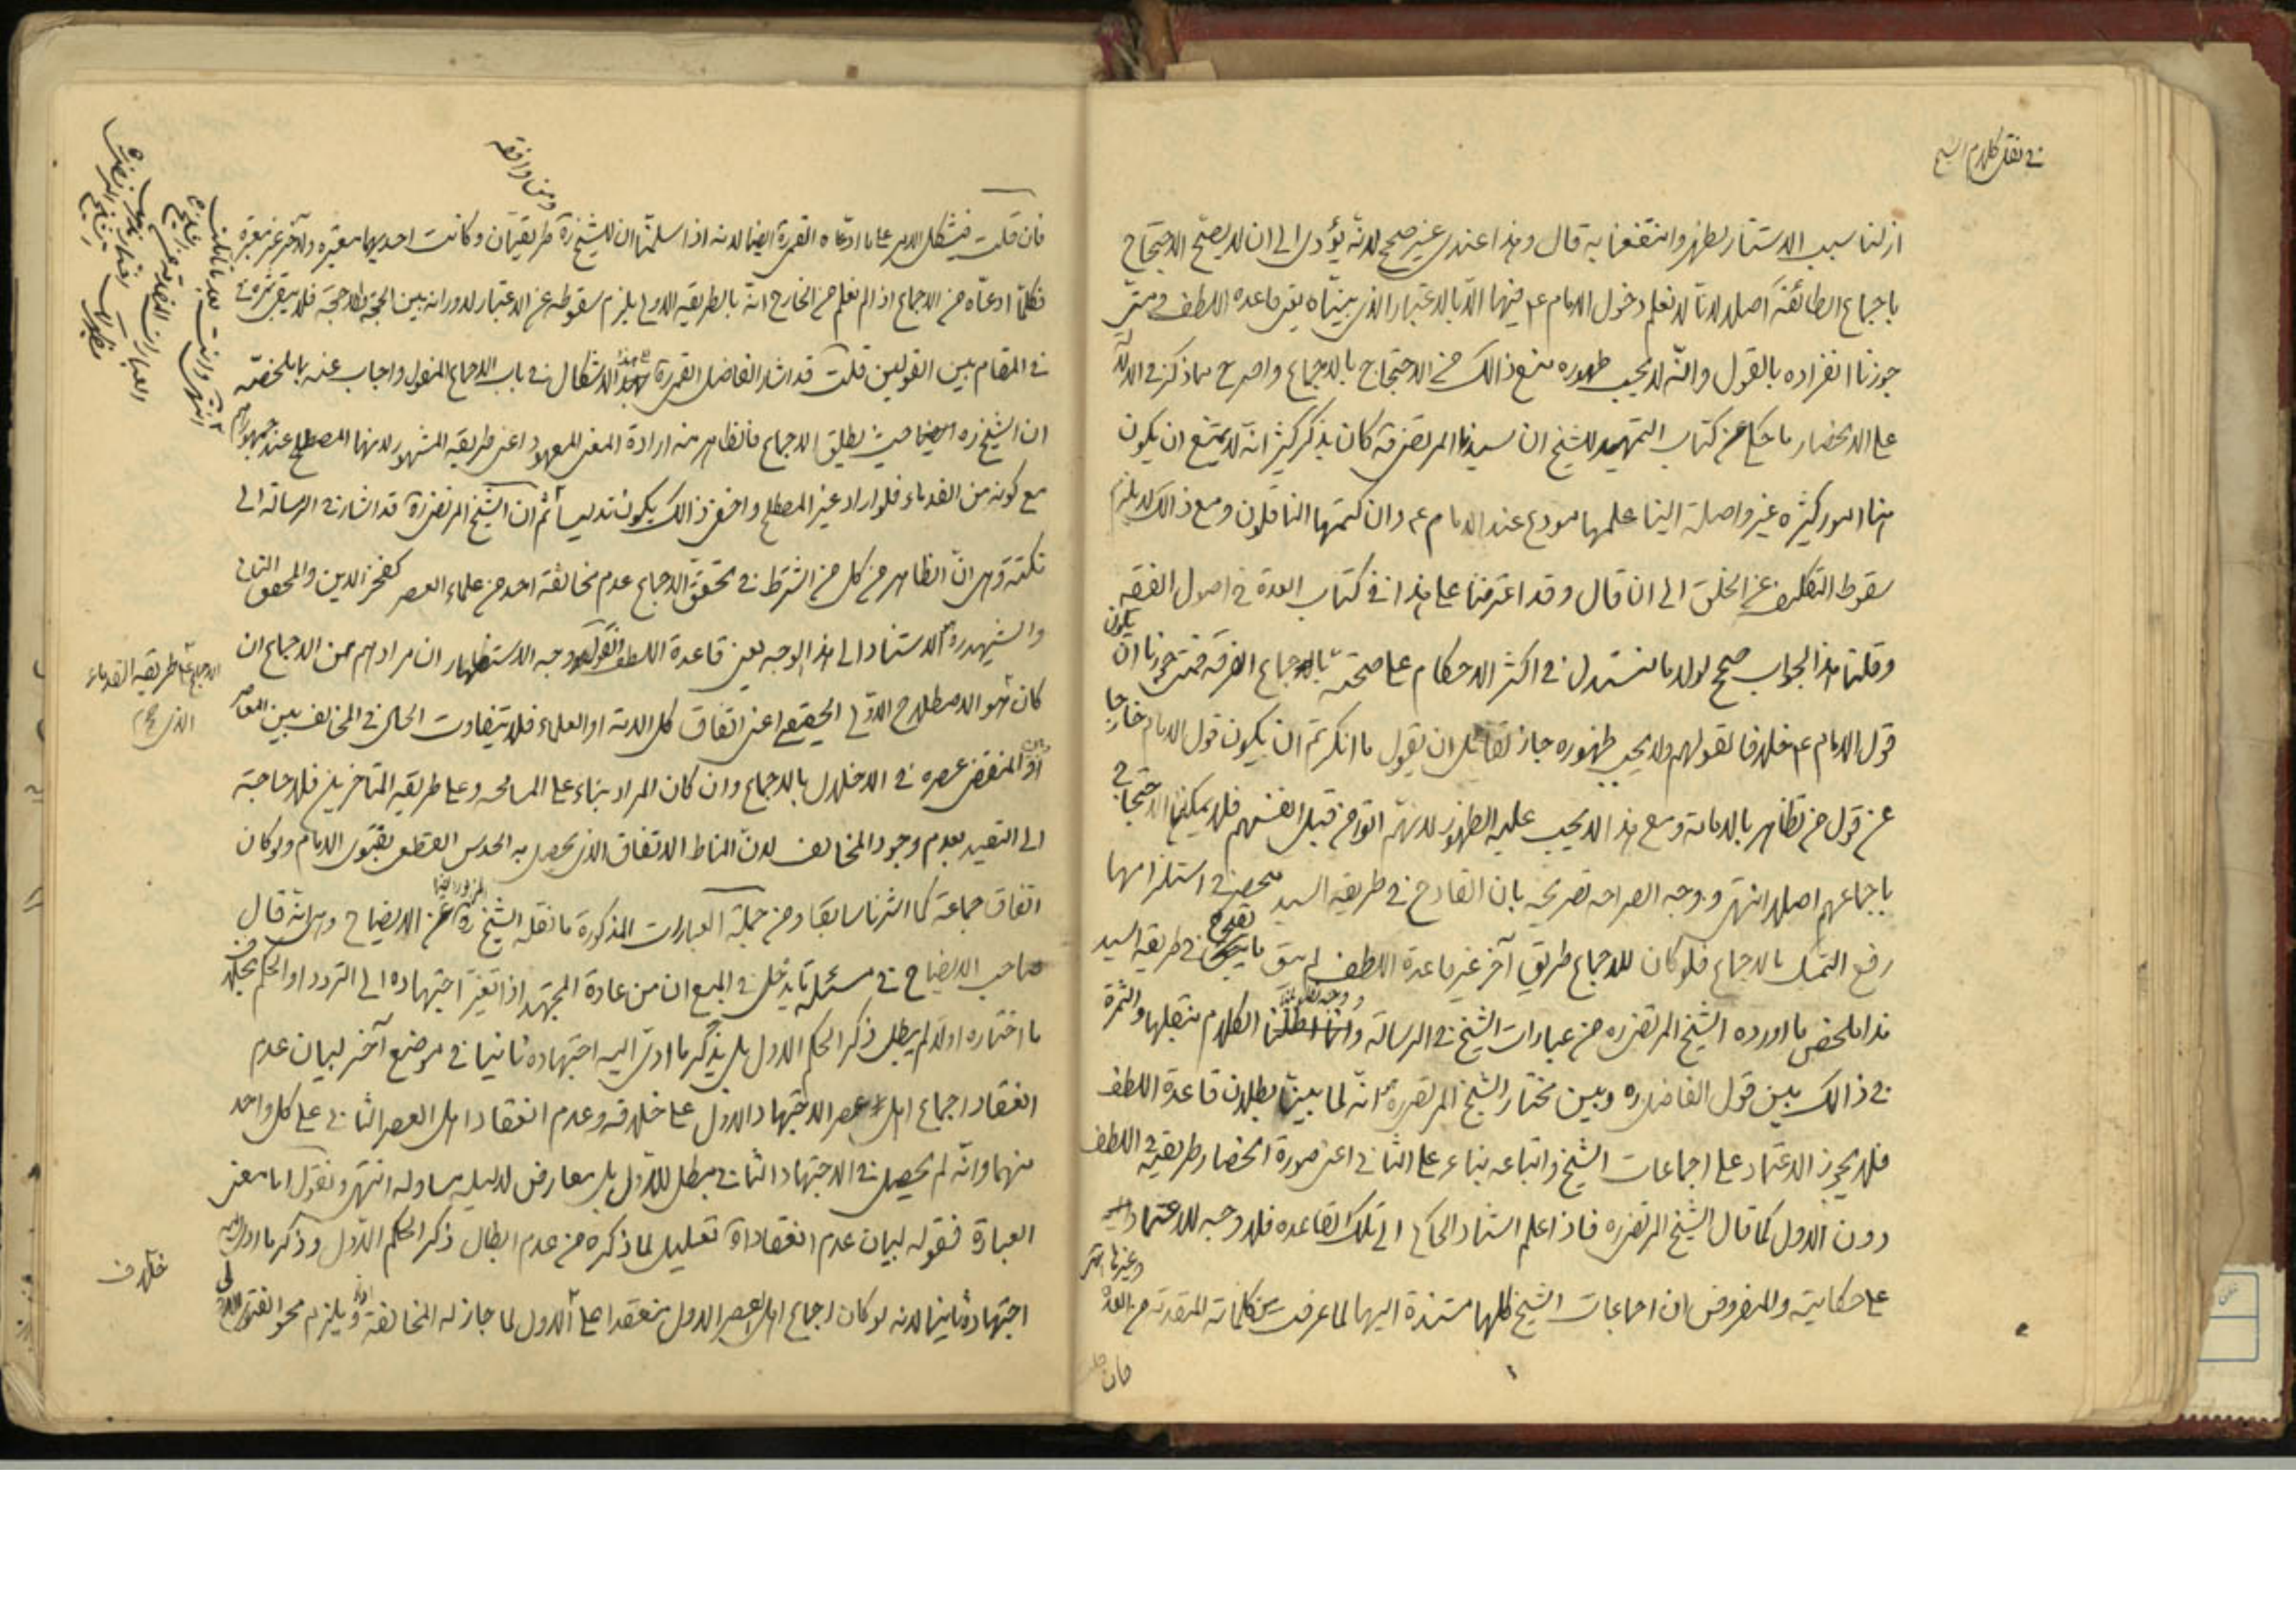 في نقل كلام الشيخ
ازلنا سبب الاستتار لظهر وانتفعنا به قال وهذا عندي غير صحيح لانه يؤدى الى ان لا يصح الاحتجاج
باجماع الطائفة اصلا لانا لا نعلم دخول الامام ع فيها الا بالاعتبار الذى بيناه يعنى قاعده اللطف ومتى
جوزنا انفراده بالقول وانه لا يجب ظهوره منع ذالك من الاحتجاج بالاجماع واصرح مما ذكر فى الدلالة
على الانحصار ما حكى عن كتاب التمهيد للشيخ ان سيدنا المرتضى قه كان يذكر كثيرا انه لا يمتنع ان يكون
هنا امور كثيره غير واصلة الينا علمها مودع عند الامام ع وان كتمها الناقلون ومع ذالك لا يلزم
سقوط التكليف عن الخلق الى ان قال وقد اعترضنا على هذا فى كتاب العدة فى اصول الفقه
وقلنا هذا الجواب صحيح لولا ما نستدل فى اكثر الاحكام على صحته باجماع الفرقه فمتى جوزنا ان يكون
قول الامام ع خلافا لقولهم ولا يجب ظهوره جاز لقائل ان يقول ما انكرتم ان يكون قول الامام خارجا
عن قول من تظاهر بالامامة ومع هذا لا يجب عليه الظهور لانهم اتوا من قبل انفسهم فلا يمكننا الاحتجاج
باجماعهم اصلا انتهى ووجه الصراحه تصريحه بان القادح فى طريقه السيد منحصر فى استلزامها
رفع التمسك بالاجماع فلو كان للاجماع طريق آخر غير قاعدة اللطف لم يبق ما يقدح فى طريقه السيد
هذا ملخص ما اورده الشيخ المرتضى ره من عبارات الشيخ فى الرسالة الكلام بنقلها والثمرة
فى ذالك بين قول الفاضل ره وبين مختار الشيخ المرتضى ره انه لما بين بطلان قاعدة اللطف
فلا يجوز الاعتماد على اجماعات الشيخ واتباعه بناء على الثانى اعنى صورة انحصار طريقه فى اللطف
دون الاول كما قال الشيخ المرتضى ره فاذا علم استناد الحاكى الى تلك القاعده فلا وجه للاعتماد
على حكايته والمفروض ان اجماعات الشيخ كلها مستندة اليها لما عرفت من كلماته المتقدمة من العدة وغيرها انتهى
فان قلت
ومن وافقه
فان قلت فيشكل الامر على ما ادعاه القمى ره ايضا لانه اذا سلمنا ان للشيخ ره طريقتان وكانت احديهما معتبره والاخر غير معتبرة
فكلما ادعاه من الاجماع اذا لم نعلم من الخارج انه بالطريقه الاولى يلزم سقوطه عن الاعتبار لدورانه بين الحجة واللاحجة فلا يبقى ثمرة
فى المقام بين القولين قلت قد اشار الفاضل القمى ره الى هذا الاشكال فى باب الاجماع المنقول واجاب عنه بما ملخصه
ان الشيخ ره ايضا حيث يطلق الاجماع فالظاهر منه ارادة المعنى المعهود اعنى طريقه المشهور لانها المصطلح عند جمهورهم
مع كونه من القدماء فلو اراد غير المصطلح واخفى ذالك يكون تدليسا ثم ان الشيخ المرتضى ره قد اشار فى الرسالة الى
نكتة وهى ان الظاهر من كل من اشترط فى تحقق الاجماع عدم مخالفة احد من علماء العصر كفخر الدين والمحقق الثانى
والشهيد ره الاستناد الى هذا الوجه يعنى قاعدة اللطف وجه الاستظهار ان مرادهم من الاجماع ان
كان هو الاصطلاح الاولى الحقيقى اعنى اتفاق كل الامة او العلماء فلا يتفاوت الحال فى المخالف بين المعاصر
او المنقضى عصره فى الاخلال بالاجماع وان كان المراد بناء على المسامحه وعلى طريقه المتاخرين فلا حاجة
الى التقييد بعدم وجود المخالف لان المناط الاتفاق الذى يحصل به الحدس القطعى بقول الامام ولو كان
اتفاق جماعة كما اشرنا سابقا ومن جملة العبارات المذكورة ما نقله الشيخ ره عن الايضاح وهى انه قال
صاحب الايضاح فى مسئلة ما يدخل فى المبيع ان من عادة المجتهد اذا تغير اجتهاده الى التردد او الحكم بخلاف
ما اختاره اولا لم يبطل ذكر الحكم الاول بل يذكر ما ادى اليه اجتهاده ثانيا فى موضع آخر لبيان عدم
انعقاد اجماع اهل عصر الاجتهاد الاول على خلافه وعدم انعقاد اهل العصر الثانى على كل واحد
منهما وانه لم يحصل فى الاجتهاد الثانى مبطل للاول بل معارض لدليله مساو له انتهى ونقول اما معنى
العبارة فقوله لبيان عدم انعقاد اه تعليل لما ذكره من عدم ابطال ذكر الحكم الاول وذكر ما ادى اليه
اجتهاده ثانيا لانه لو كان اجماع اهل العصر الاول منعقدا على الاول لما جاز له المخالفة ويلزم محو الفتوى
الاجماع على طريقه القدماء
خلاف